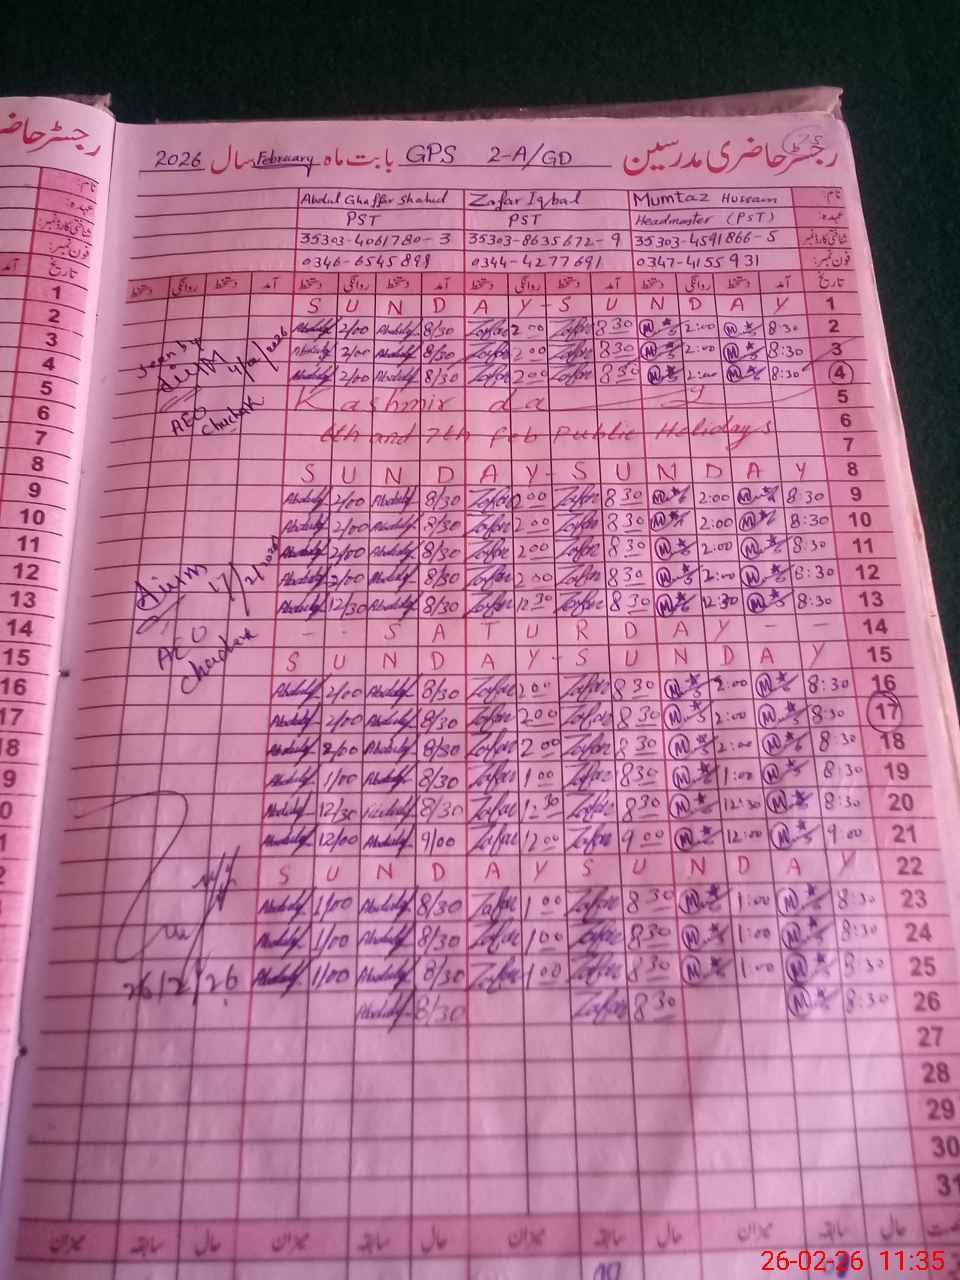 رجسٹر حاضری مدرسین GPS 2-A/GD بابت ماہ February سال 2026
نام: Mumtaz Hussain Zafar Iqbal Abdul Ghaffar Shahid
عہدہ: Headmaster (PST) PST PST
شناختی کارڈ نمبر: 35303-4591866-5 35303-8635672-9 35303-4061780-3
فون نمبر: 0347-4155931 0344-4277691 0346-6545898
تاریخ آمد دستخط روانگی دستخط آمد دستخط روانگی دستخط آمد دستخط روانگی دستخط آمد دستخط روانگی دستخط
S U N D A Y - S U N D A Y 1
Abdul 2/00 Abdul 8/30 Zafar 2 00 Zafar 8 30 M 2:00 M 8:30 2
Abdul 2/00 Abdul 8/30 Zafar 2 00 Zafar 8 30 M 2:00 M 8:30 3
Abdul 2/00 Abdul 8/30 Zafar 2 00 Zafar 8 30 M 2:00 M 8:30 4
Kashmir day 5
6th and 7th Feb Public Holidays 6
7
S U N D A Y - S U N D A Y 8
Abdul 2/00 Abdul 8/30 Zafar 2 00 Zafar 8 30 M 2:00 M 8:30 9
Abdul 2/00 Abdul 8/30 Zafar 2 00 Zafar 8 30 M 2:00 M 8:30 10
Abdul 2/00 Abdul 8/30 Zafar 2 00 Zafar 8 30 M 2:00 M 8:30 11
Abdul 2/00 Abdul 8/30 Zafar 2 00 Zafar 8 30 M 2:00 M 8:30 12
Abdul 12/30 Abdul 8/30 Zafar 12 30 Zafar 8 30 M 12:30 M 8:30 13
- - S A T U R D A Y - - 14
S U N D A Y - S U N D A Y 15
Abdul 2/00 Abdul 8/30 Zafar 2 00 Zafar 8 30 M 2:00 M 8:30 16
Abdul 2/00 Abdul 8/30 Zafar 2 00 Zafar 8 30 M 2:00 M 8:30 17
Abdul 2/00 Abdul 8/30 Zafar 2 00 Zafar 8 30 M 2:00 M 8:30 18
Abdul 1/00 Abdul 8/30 Zafar 1 00 Zafar 8 30 M 1:00 M 8:30 19
Abdul 12/30 Abdul 8/30 Zafar 12 30 Zafar 8 30 M 12:30 M 8:30 20
Abdul 12/00 Abdul 9/00 Zafar 12 00 Zafar 9 00 M 12:00 M 9:00 21
S U N D A Y S U N D A Y 22
Abdul 1/00 Abdul 8/30 Zafar 1 00 Zafar 8 30 M 1:00 M 8:30 23
Abdul 1/00 Abdul 8/30 Zafar 1 00 Zafar 8 30 M 1:00 M 8:30 24
Abdul 1/00 Abdul 8/30 Zafar 1 00 Zafar 8 30 M 1:00 M 8:30 25
Abdul 8/30 Zafar 8 30 M 8:30 26
27
28
29
30
31
میزان سابقہ حال میزان سابقہ حال میزان سابقہ حال میزان سابقہ حال
seen by
4/2/2026
AEO
chuchak
17/2/2026
AEO
chuchak
26/2/26
رجسٹر حاضری
نام:
عہدہ:
شناختی کارڈ نمبر:
فون نمبر:
تاریخ
1
2
3
4
5
6
7
8
9
10
11
12
13
14
15
16
17
18
26-02-26 11:35